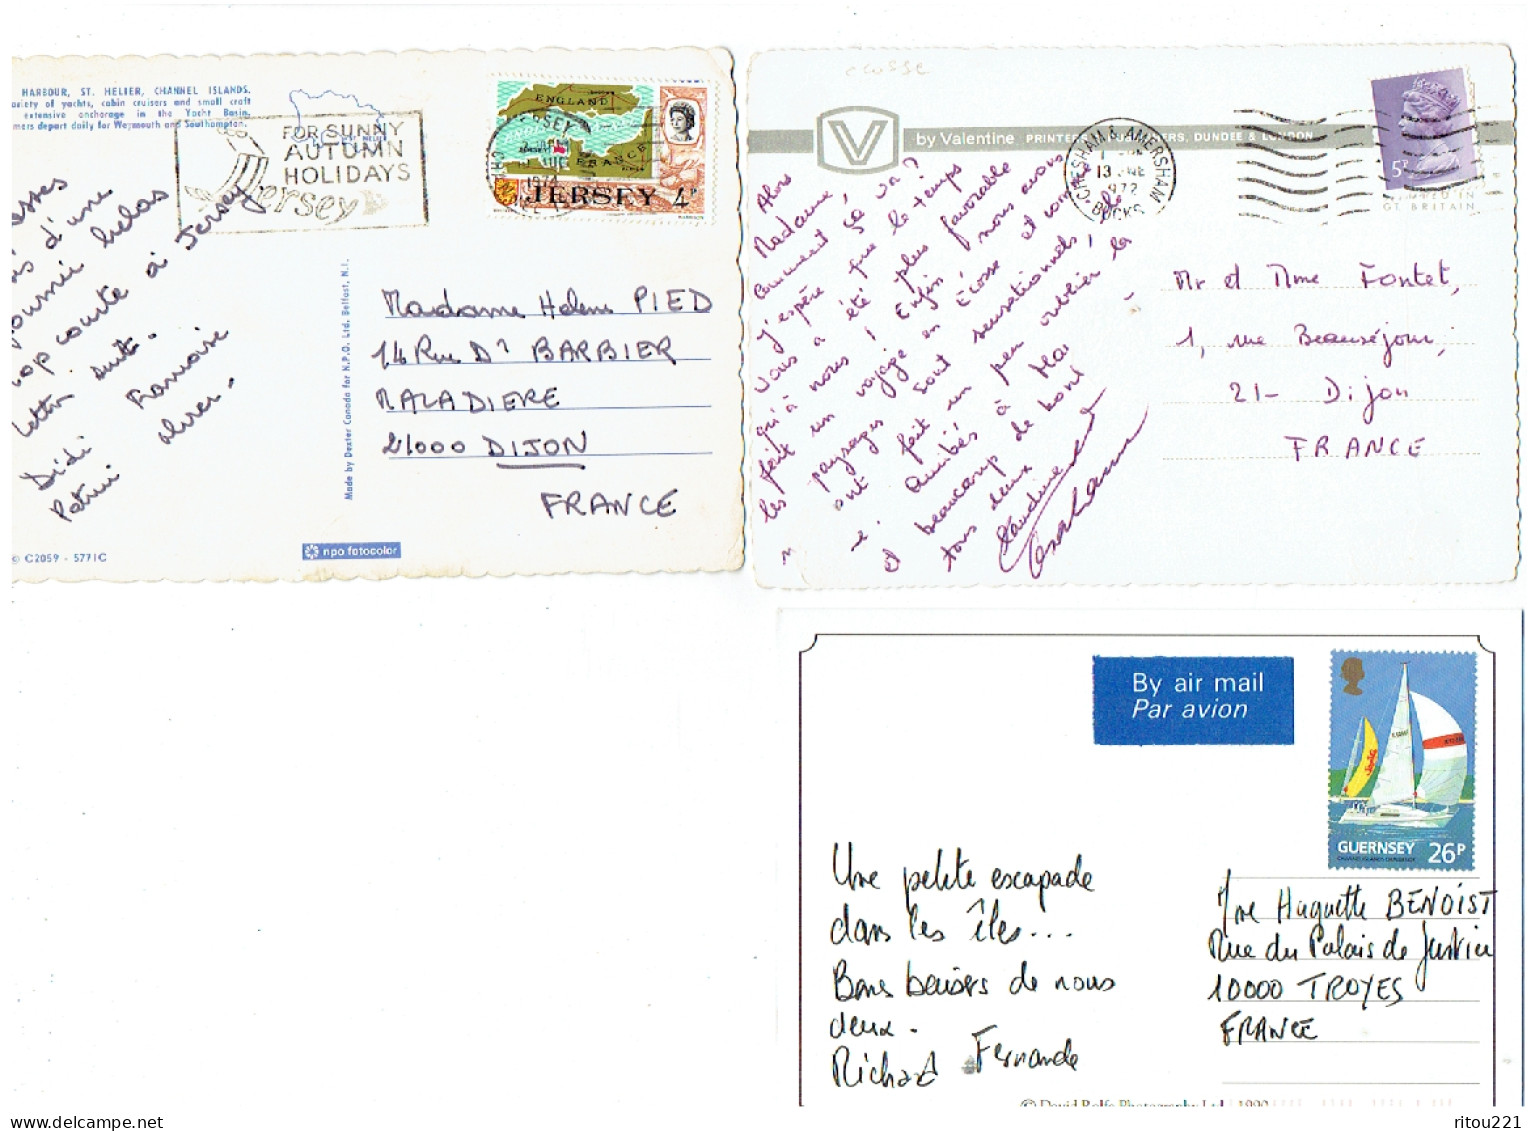 HARBOUR, ST. HELIER, CHANNEL ISLANDS.
ariety of yachts, cabin cruisers and small craft
extensive anchorage in the Yacht Basin.
mers depart daily for Weymouth and Southampton.
FOR SUNNY
AUTUMN
HOLIDAYS
Jersey
ENGLAND
FRANCE
JERSEY 4P
d'une
journée hélas
trop courte à Jersey
Lettre suit.
Françoise
Didi
Patrice
Made by Dexter Canada for N.P.O. Ltd. Belfast, N.I.
Madame Helene PIED
14 Rue Dr BARBIER
MALADIERE
21000 DIJON
FRANCE
© C2059 - 5771C
npo fotocolor
ecosse
V by Valentine PRINTERS & PUBLISHERS, DUNDEE & LONDON
CHESHAM & AMERSHAM
13
1972
BUCKS
5P
GT BRITAIN
Alors
Madame,
Comment ça va?
J'espère que le temps
vous a été plus favorable
qu'à nous! Enfin nous avons
fait un voyage en Ecosse et comme
les paysages sont sensationnels,
ont fait un peu oublier la
Amitiés à Mai
et beaucoup de
tous deux
Claudine
Mr et Mme Fontet,
1, rue Beauséjour,
21 - Dijon
FRANCE
By air mail
Par avion
GUERNSEY 26P
Une petite escapade
dans les îles...
Bons baisers de nous
deux.
Richard Fernande
Mme Huguette BENOIST
Rue du Palais de Justice
10000 TROYES
FRANCE
© David Rolfe Photography Ltd. 1990
delcampe.net
ritou221